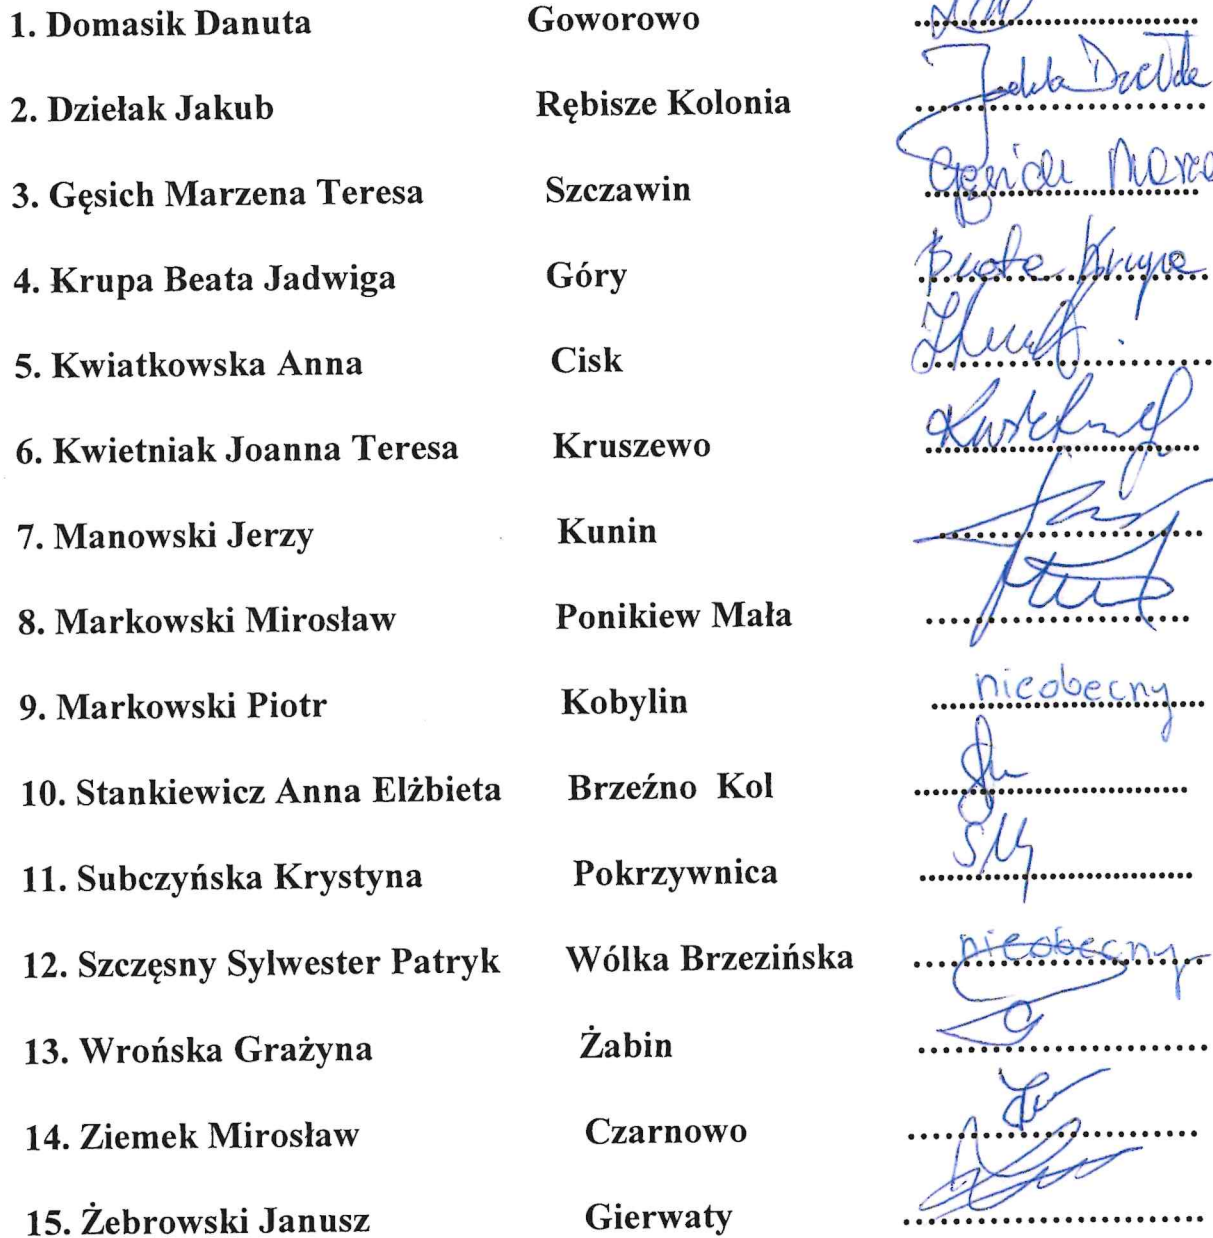 1. Domasik Danuta Goworowo
2. Dziełak Jakub Rębisze Kolonia
3. Gęsich Marzena Teresa Szczawin
4. Krupa Beata Jadwiga Góry Beata Krupa
5. Kwiatkowska Anna Cisk
6. Kwietniak Joanna Teresa Kruszewo
7. Manowski Jerzy Kunin
8. Markowski Mirosław Ponikiew Mała
9. Markowski Piotr Kobylin nieobecny
10. Stankiewicz Anna Elżbieta Brzeźno Kol
11. Subczyńska Krystyna Pokrzywnica
12. Szczęsny Sylwester Patryk Wólka Brzezińska nieobecny
13. Wrońska Grażyna Żabin
14. Ziemek Mirosław Czarnowo
15. Żebrowski Janusz Gierwaty